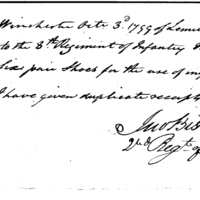 Winchester Octr 3d 1799 of Lemu
to the 8th Regiment of Infantry
Six pair Shoes for the use of my
I have given duplicate receipts
Jno Bis
2nd Regt of